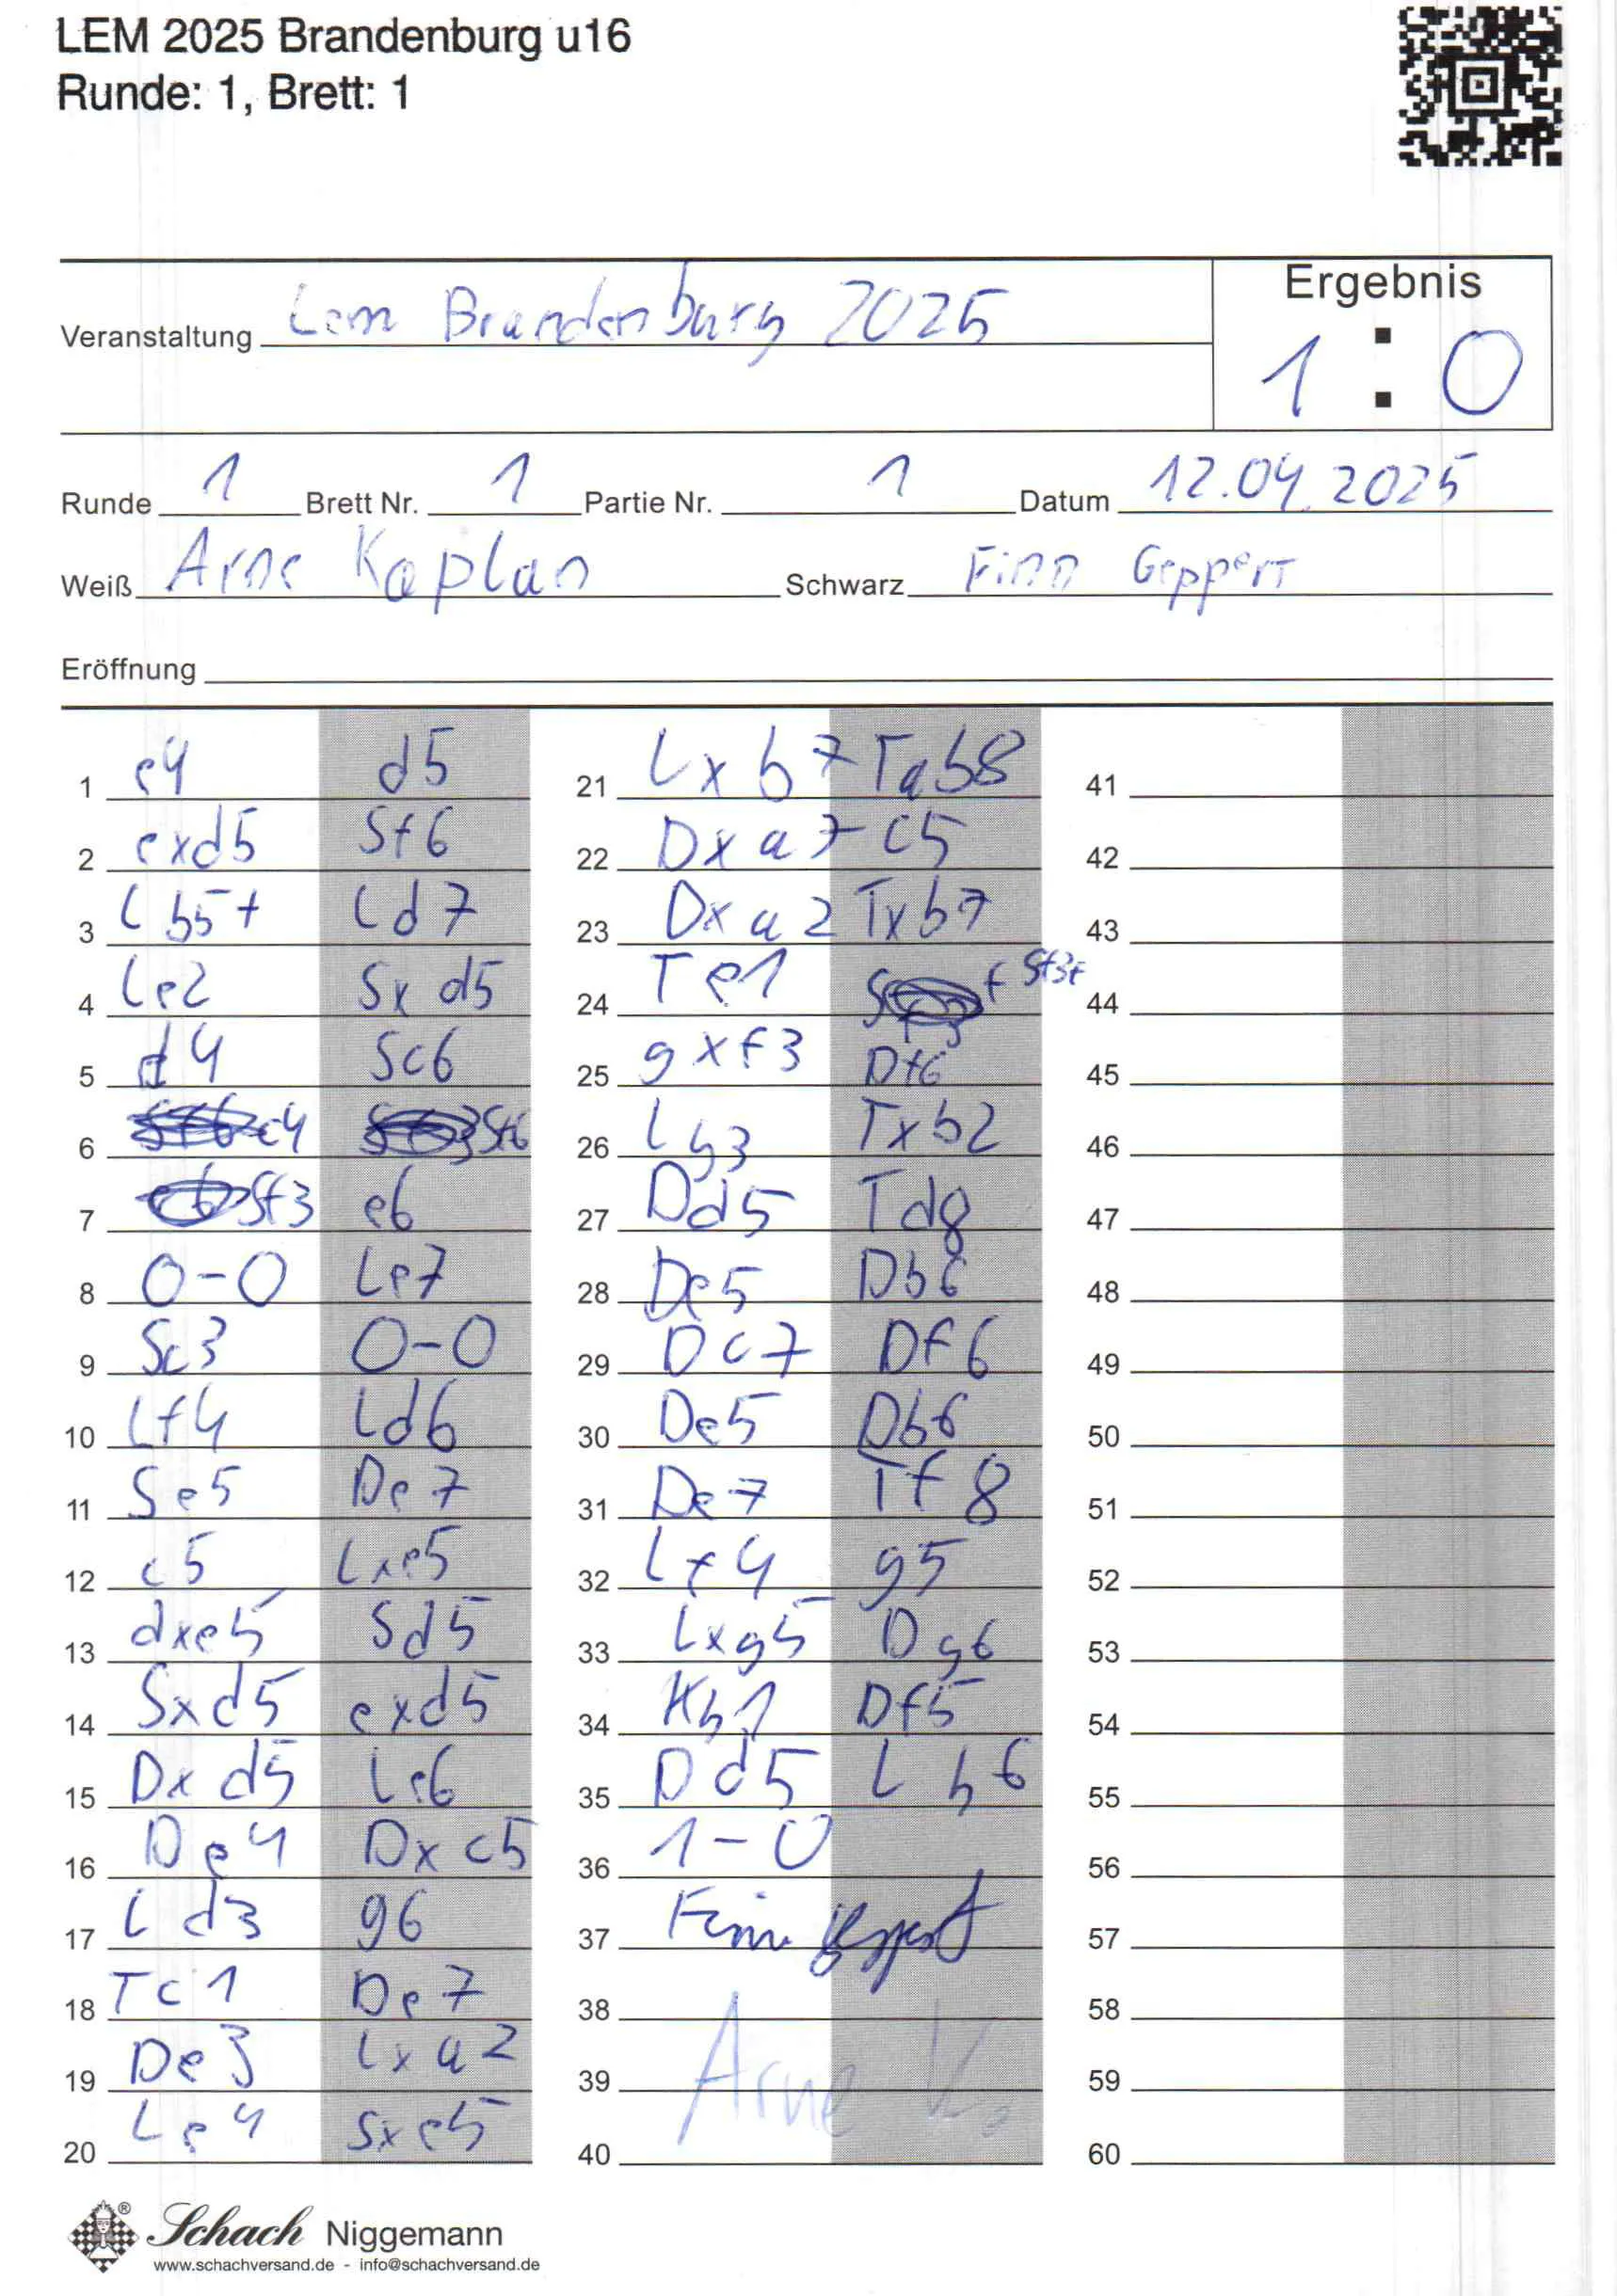 LEM 2025 Brandenburg u16
Runde: 1, Brett: 1
Veranstaltung Lem Brandenburg 2025
Ergebnis
1 : 0
Runde 1 Brett Nr. 1 Partie Nr. 1 Datum 12.04.2025
Weiß Arne Kaplan Schwarz Finn Geppert
Eröffnung
1 e4 d5
2 exd5 Sf6
3 Lb5+ Ld7
4 Le2 Sxd5
5 d4 Sc6
6 c4 Sf6
7 Sf3 e6
8 0-0 Le7
9 Sc3 0-0
10 Lf4 Ld6
11 Se5 De7
12 c5 Lxe5
13 dxe5 Sd5
14 Sxd5 exd5
15 Dxd5 Le6
16 De4 Dxc5
17 Ld3 g6
18 Tc1 De7
19 De3 Lxa2
20 Le4 Sxe5
21 Lxb7 Tab8
22 Dxa7 c5
23 Dxa2 Txb7
24 Te1 Sf3+
25 gxf3 Df6
26 Lg3 Txb2
27 Dd5 Td8
28 De5 Db6
29 Dc7 Df6
30 De5 Db6
31 De7 Tf8
32 Lf4 g5
33 Lxg5 Dg6
34 Kh1 Df5
35 Dd5 Lh6
36 1-0
37 Finn Geppert
38
39 Arne K.
40
41
42
43
44
45
46
47
48
49
50
51
52
53
54
55
56
57
58
59
60
Schach Niggemann
www.schachversand.de - info@schachversand.de